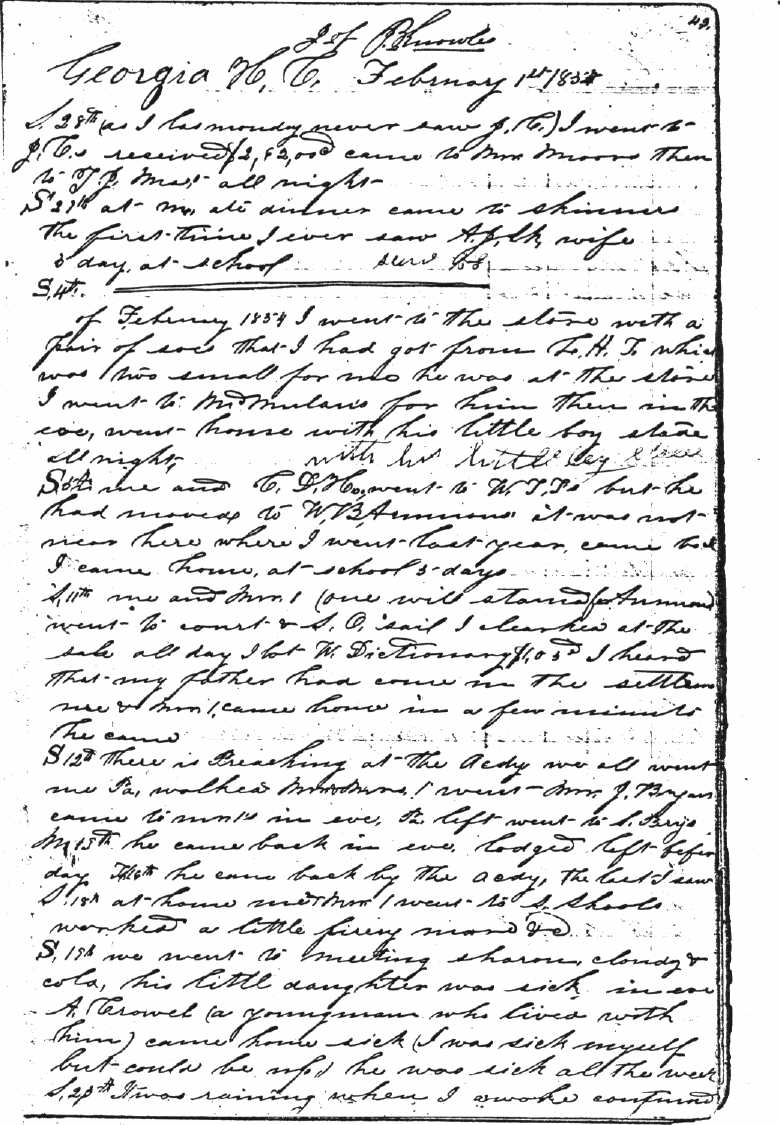 49.
J. P. Knowles
Georgia H. C. February 1st 1854.
S. 28th (as I las monday never saw J. C.) I went to
J. C.s received $2, & 2,00d came to Mrs. Moors then
to T. J. all night
S 29th at ate dinner came to Skinners
the first time I ever saw A. J. wife
5 day, at school
S. 4th.
of February 1854 I went to the store with a
pair of socs that I had got from L. H. T. whic
was two small for me he was at the store
I went to McMulans for him then in the
eve, went house with his little boy staie
all night, with his little boy staie
S 5th me and C. D. H. went to W. T. Ts but he
had moved to W. B. Ammons it was not
near here where I went last year, came back
I came home, at school 5 days
S, 11th me and Mr. 1 (one will stand for Ammond
went to court & S. O. sail I clearked at the
sale all day I bt W. Dictionary $1,05d I heard
that my father had come in the settlem
me & Mr. 1, came home in a few minuts
he came
S 12th there is Preaching at the Acdy we all went
me Pa, walked Mr & Mrs. 1 went Mr. J. Bryans
came to Mr 1s in eve, Pa left went to S. Brys.
M 13th he came back in eve, lodged left befor
day he came back by the Acdy, the last I saw
S. 18th at home me & Mr. 1 went to S. Shools
worked a little firery mand &c
S. 19th we went to meeting sharon, cloudy &
cold, his little daughter was sick, in eve
A. Crowel (a youngman who lived with
him) came home sick (I was sick myself
but could be up,) he was sick all the week
S. 25th It was raining when I awoke confined